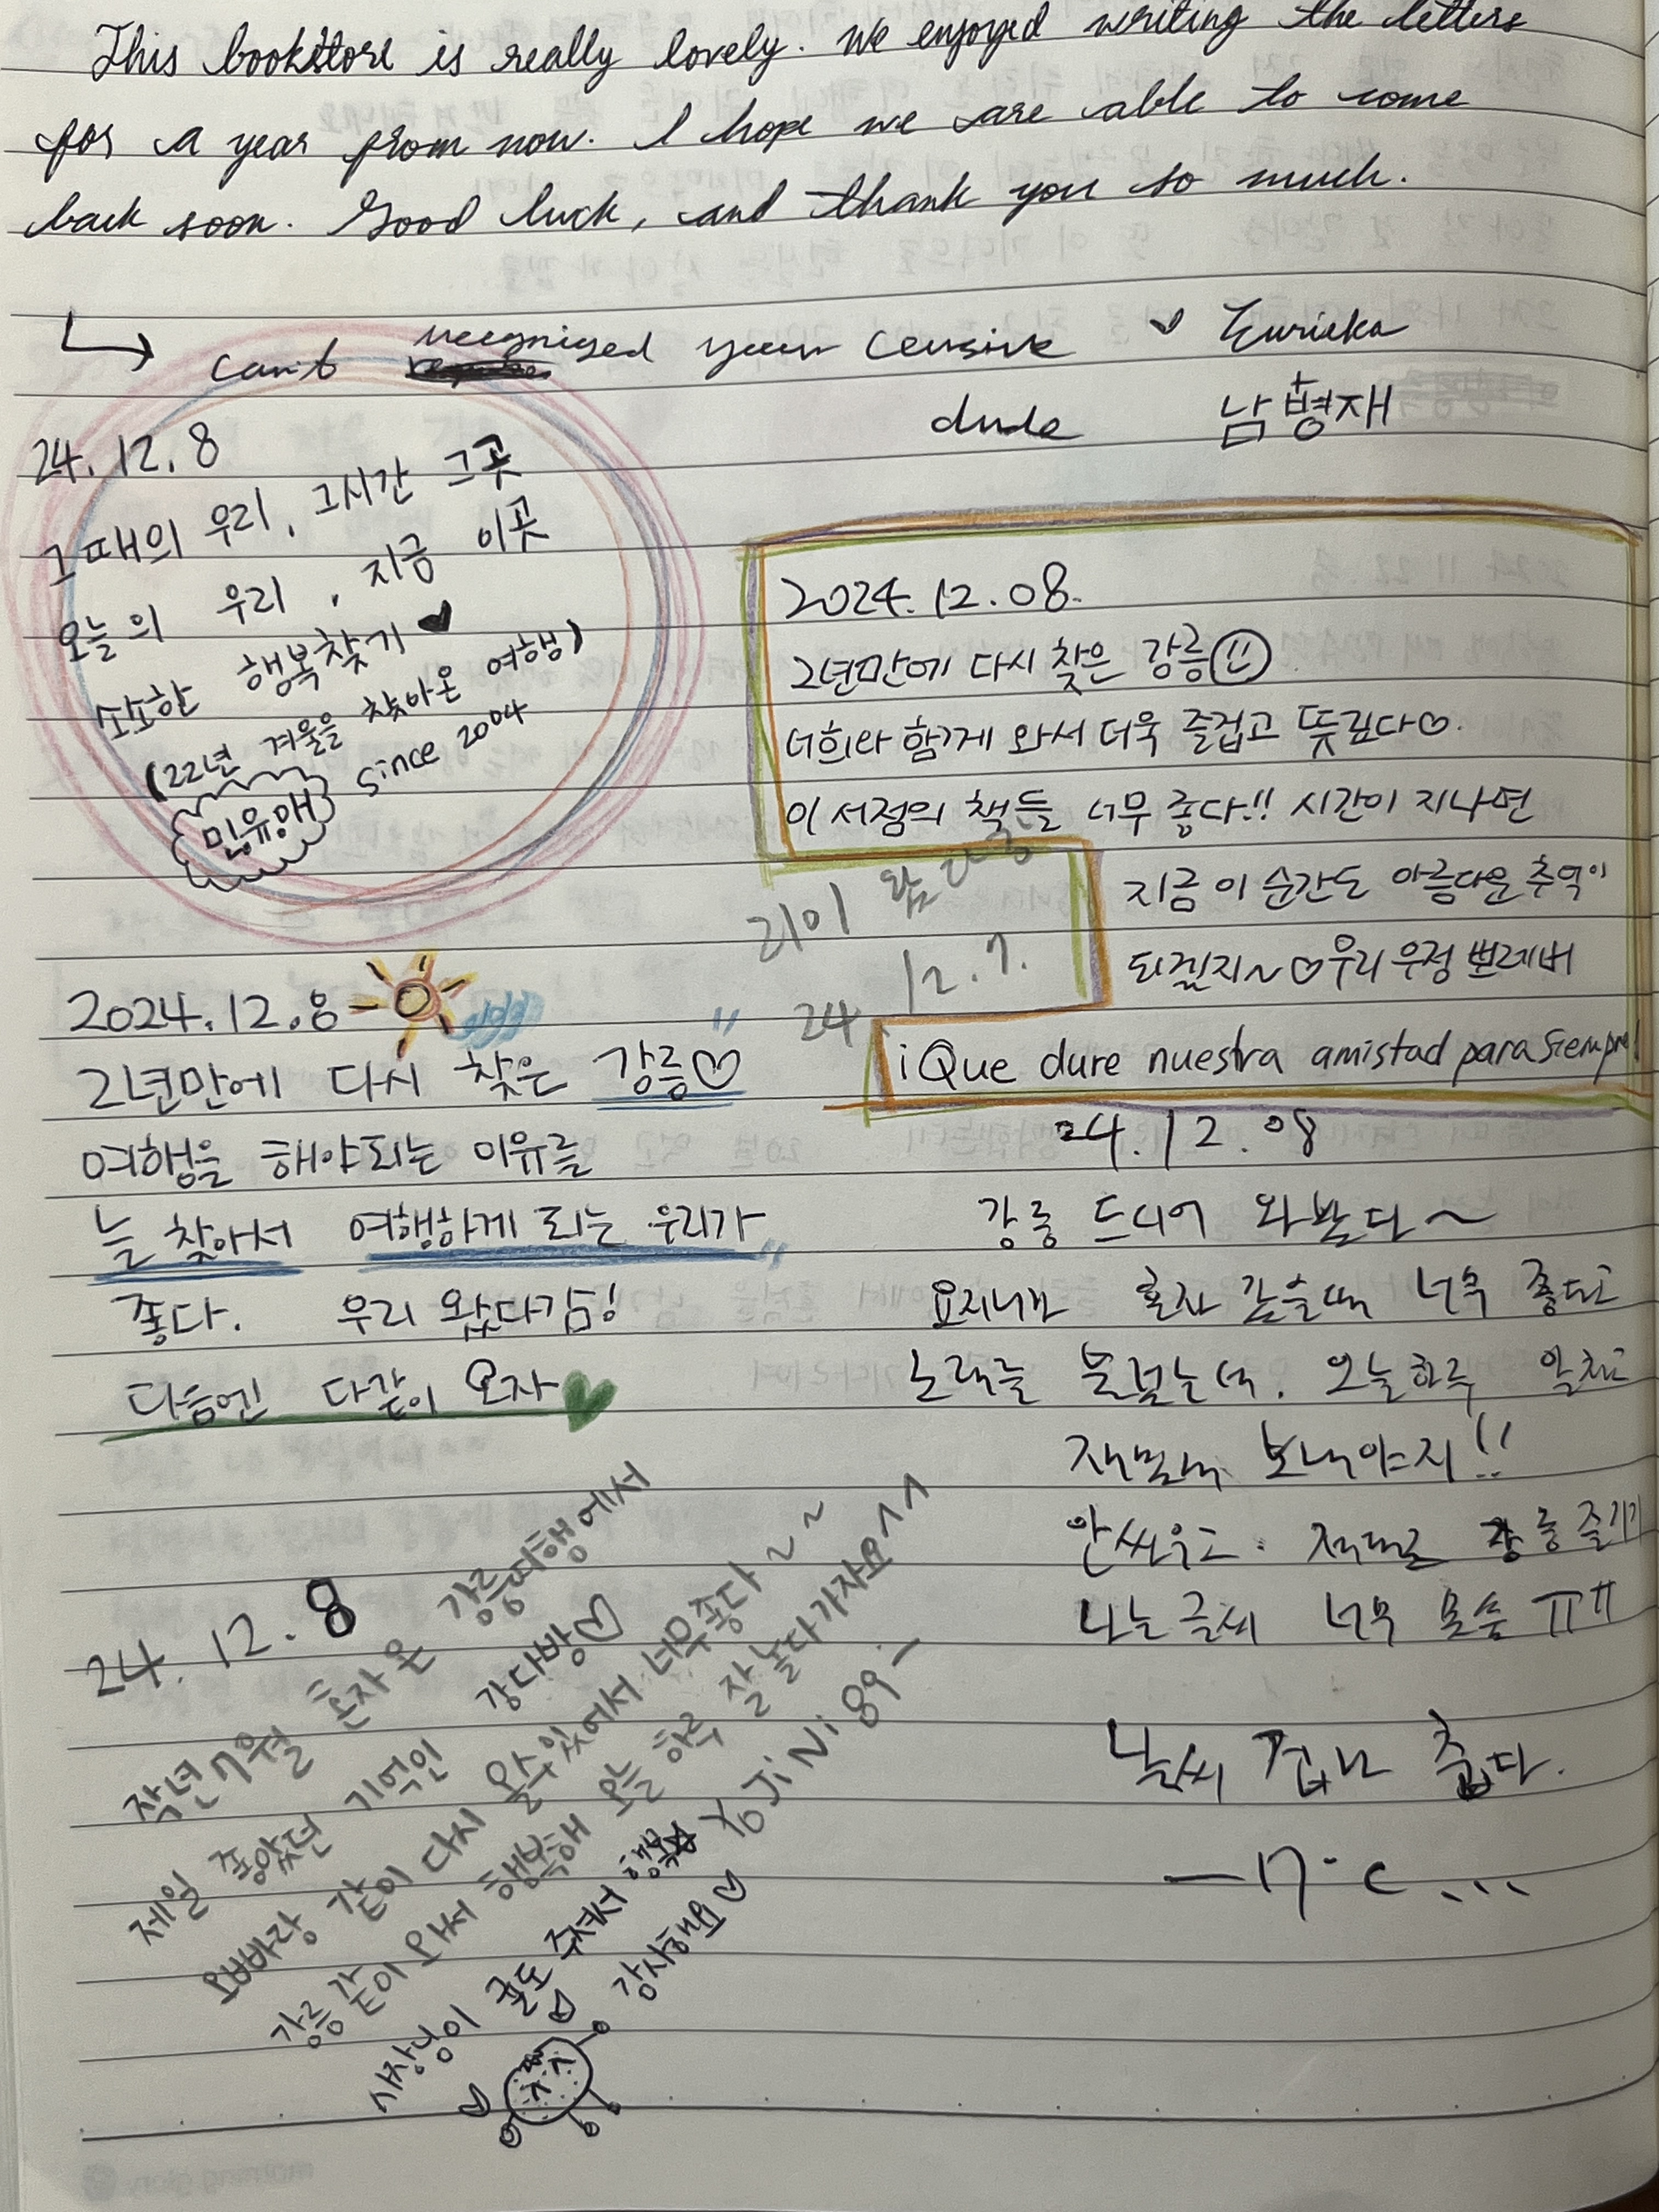 This bookstore is really lovely. We enjoyed writing the letters
for a year from now. I hope we are able to come
back soon. Good luck, and thank you so much.
can't recognized your cursive
dude
Eurieka
남병재
24. 12. 8
그때의 우리, 그시간 그곳
오늘의 우리, 지금 이곳
소소한 행복찾기 ♥
(22년 겨울을 찾아온 여행)
민유매 since 2004
2024. 12. 08.
2년만에 다시 찾은 강릉
너희와 함께 와서 더욱 즐겁고 뜻깊다♡.
이 서점의 책들 너무 좋다!! 시간이 지나면
지금 이 순간도 아름다운 추억이
되겠지~♡우리 우정 뽀레버
¡Que dure nuestra amistad para siempre!
리이 왔다감
24 12.7.
2024.12.8
2년만에 다시 찾은 "강릉♡
여행을 해야되는 이유를
늘 찾아서 여행하게 되는 우리가"
좋다. 우리 왔다감!
다음엔 다같이 오자
24.12.08
강릉 드디어 와봤다~
요지니가 혼자 갔을때 너무 좋다고
노래를 불렀는데. 오늘하루 알차고
재밌게 보내야지!!
안싸우고. 제대로 강릉 즐기기
나는 글씨 너무 못씀 ㅠㅠ
날씨 겁나 춥다.
-7°c...
24. 12. 8
작년 7월 혼자 온 강릉여행에서
제일 좋았던 기억인 강다방♡
오빠랑 같이 다시 올수있어서 너무좋다~~
강릉 같이 와서 행복해 오늘 하루 잘 놀다가자요^^
yoJiNi89-
사장님이 귤도 주셔서
감사해요♡